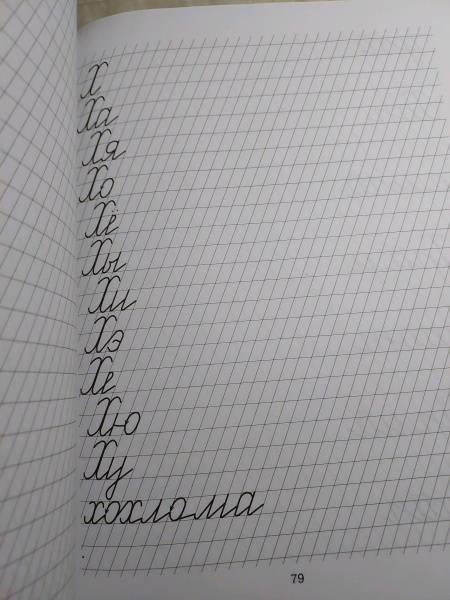 Х
Ха
Хя
Хо
Хё
Хы
Хи
Хэ
Хе
Хю
Ху
хохлома
79